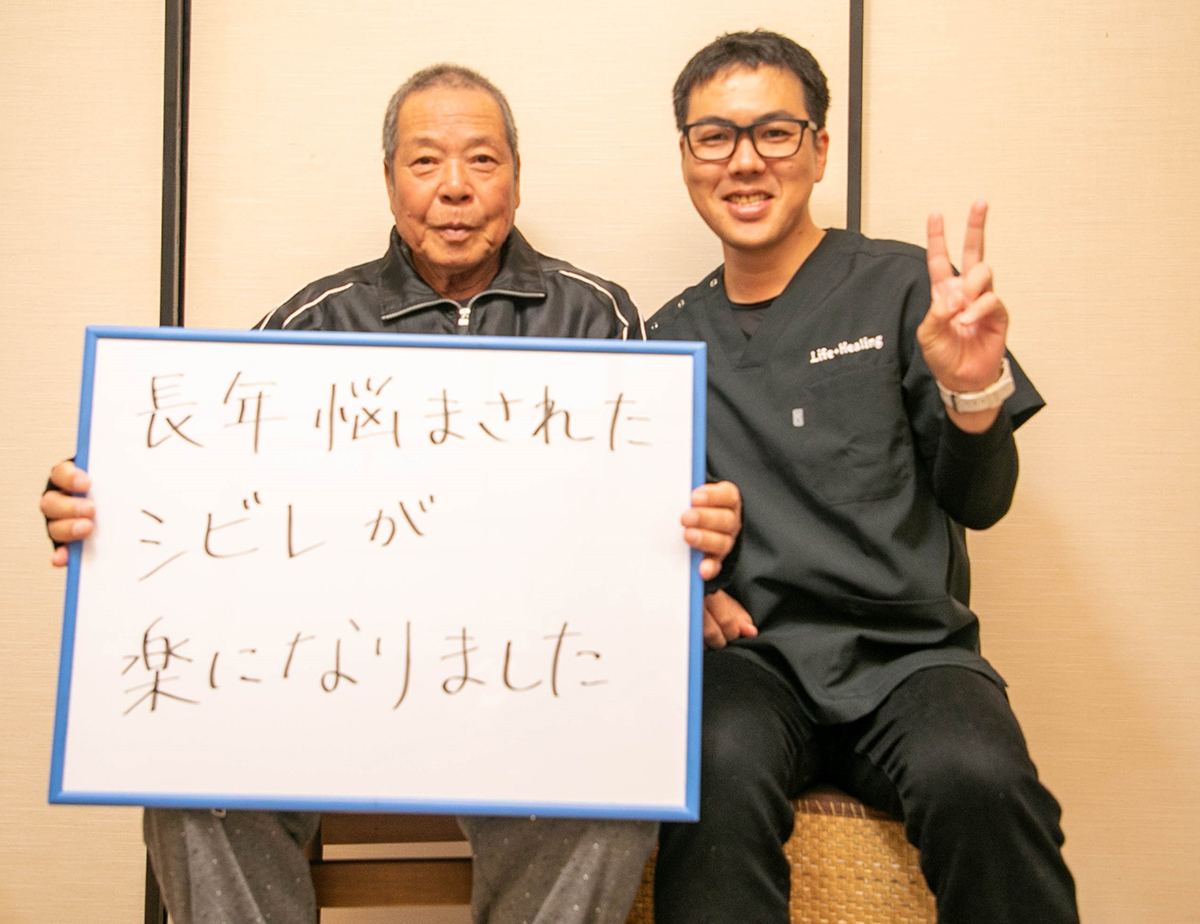 長年悩まされた
シビレが
楽になりました
Life+Healing